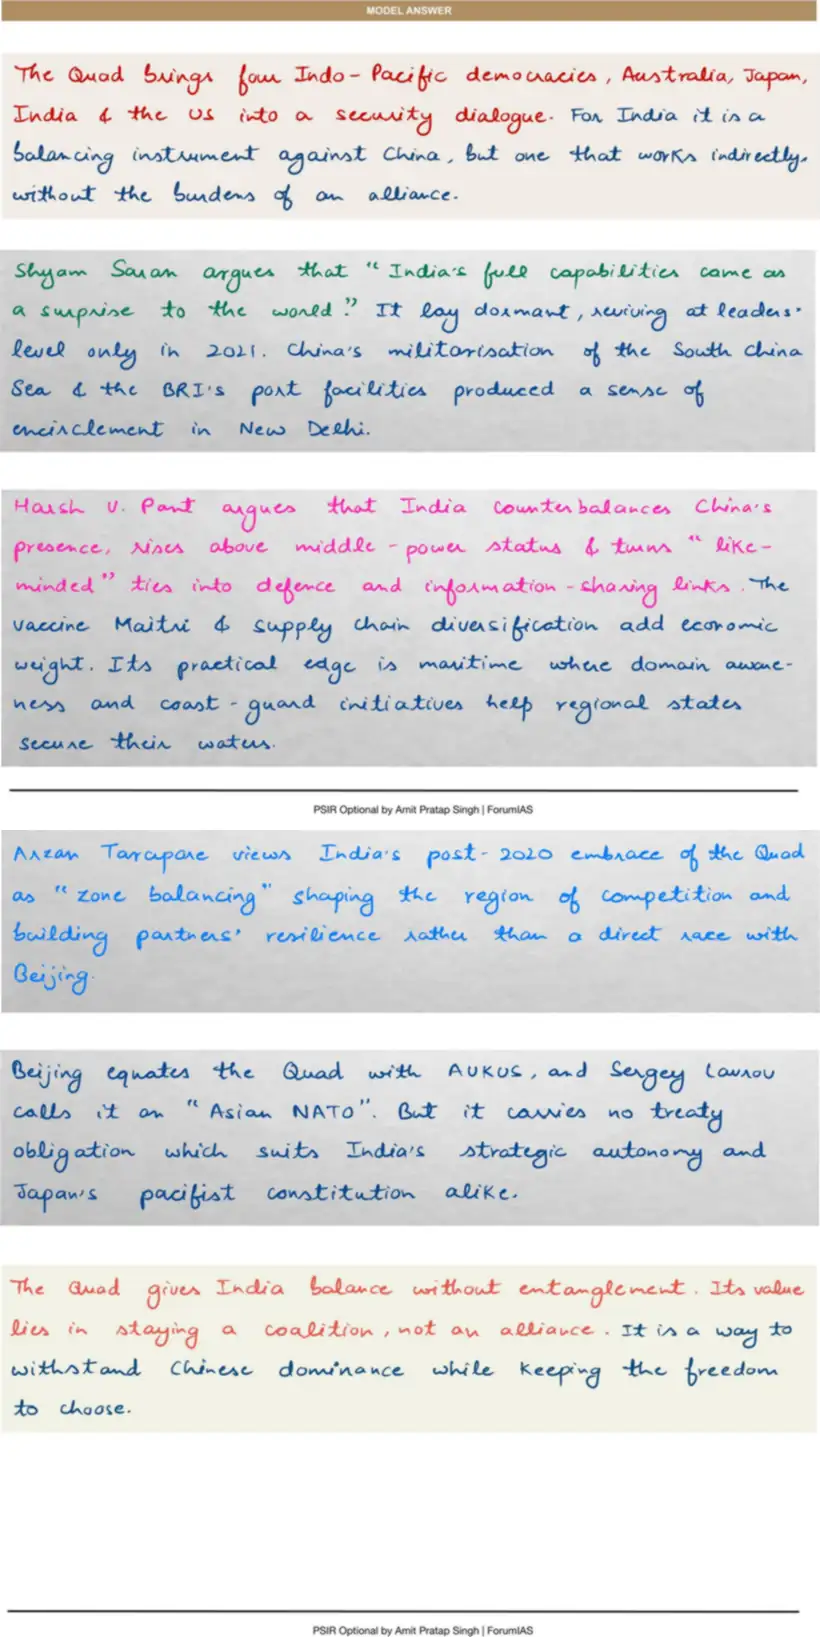 MODEL ANSWER
The Quad brings four Indo-Pacific democracies, Australia, Japan,
India & the US into a security dialogue. For India it is a
balancing instrument against China, but one that works indirectly,
without the burdens of an alliance.
Shyam Saran argues that "India's full capabilities came as
a surprise to the world". It lay dormant, reviving at leaders'
level only in 2021. China's militarisation of the South China
Sea & the BRI's port facilities produced a sense of
encirclement in New Delhi.
Harsh V. Pant argues that India counterbalances China's
presence, rises above middle-power status & turns "like-
minded" ties into defence and information-sharing links. The
vaccine Maitri & supply chain diversification add economic
weight. Its practical edge is maritime where domain aware-
ness and coast-guard initiatives help regional states
secure their waters.
PSIR Optional by Amit Pratap Singh | ForumIAS
Arzan Tarapore views India's post-2020 embrace of the Quad
as "zone balancing" shaping the region of competition and
building partners' resilience rather than a direct race with
Beijing.
Beijing equates the Quad with AUKUS, and Sergey Lavrov
calls it an "Asian NATO". But it carries no treaty
obligation which suits India's strategic autonomy and
Japan's pacifist constitution alike.
The Quad gives India balance without entanglement. Its value
lies in staying a coalition, not an alliance. It is a way to
withstand Chinese dominance while keeping the freedom
to choose.
PSIR Optional by Amit Pratap Singh | ForumIAS